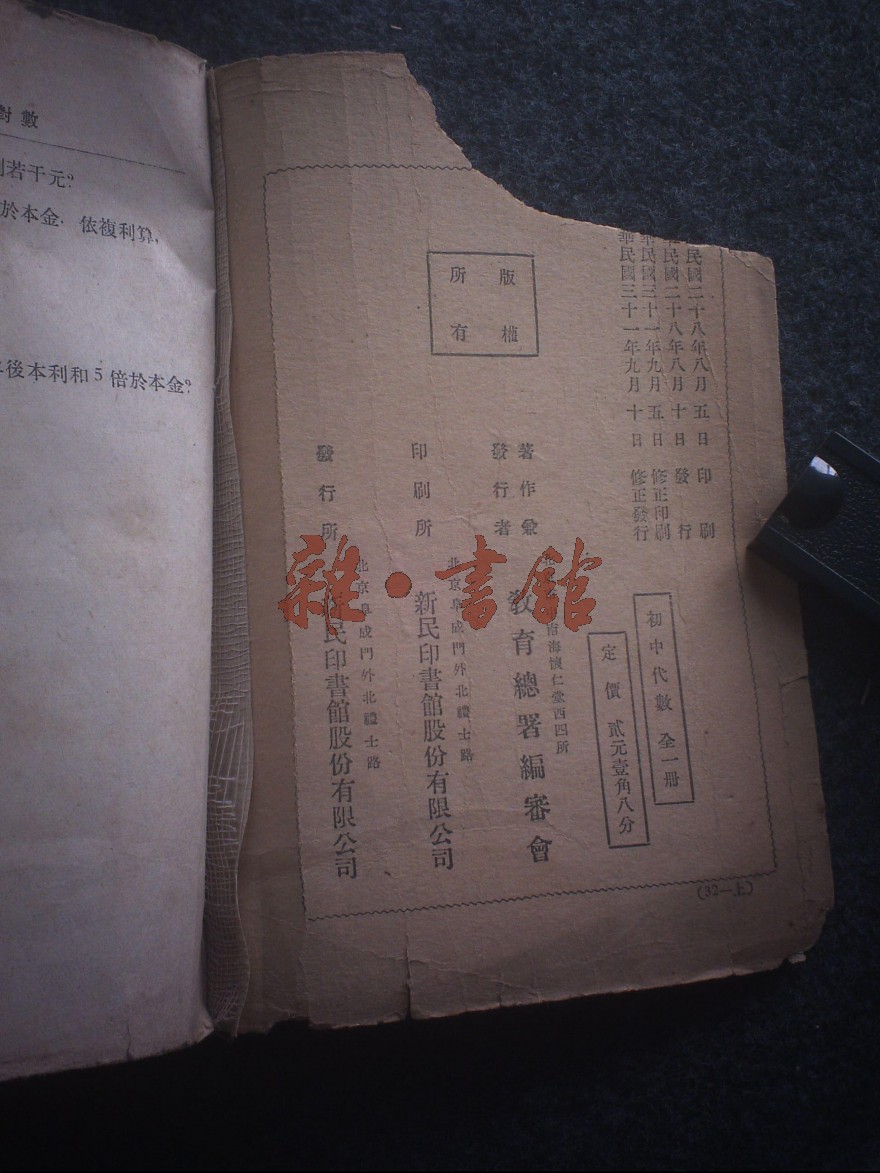 對數
若干元?
於本金. 依複利算,
後本利和5倍於本金?
民國二十八年八月五日 印刷
民國二十八年八月十日 發行
華民國三十一年九月五日 修正印刷
華民國三十一年九月十日 修正發行
初中代數 全一冊
定價 貳元壹角八分
版權所有
著作兼
發行者
南海懷仁堂西四所
教育總署編審會
印刷所
北京阜成門外北禮士路
新民印書館股份有限公司
發行所
北京阜成門外北禮士路
新民印書館股份有限公司
(32—上)
雜·書館